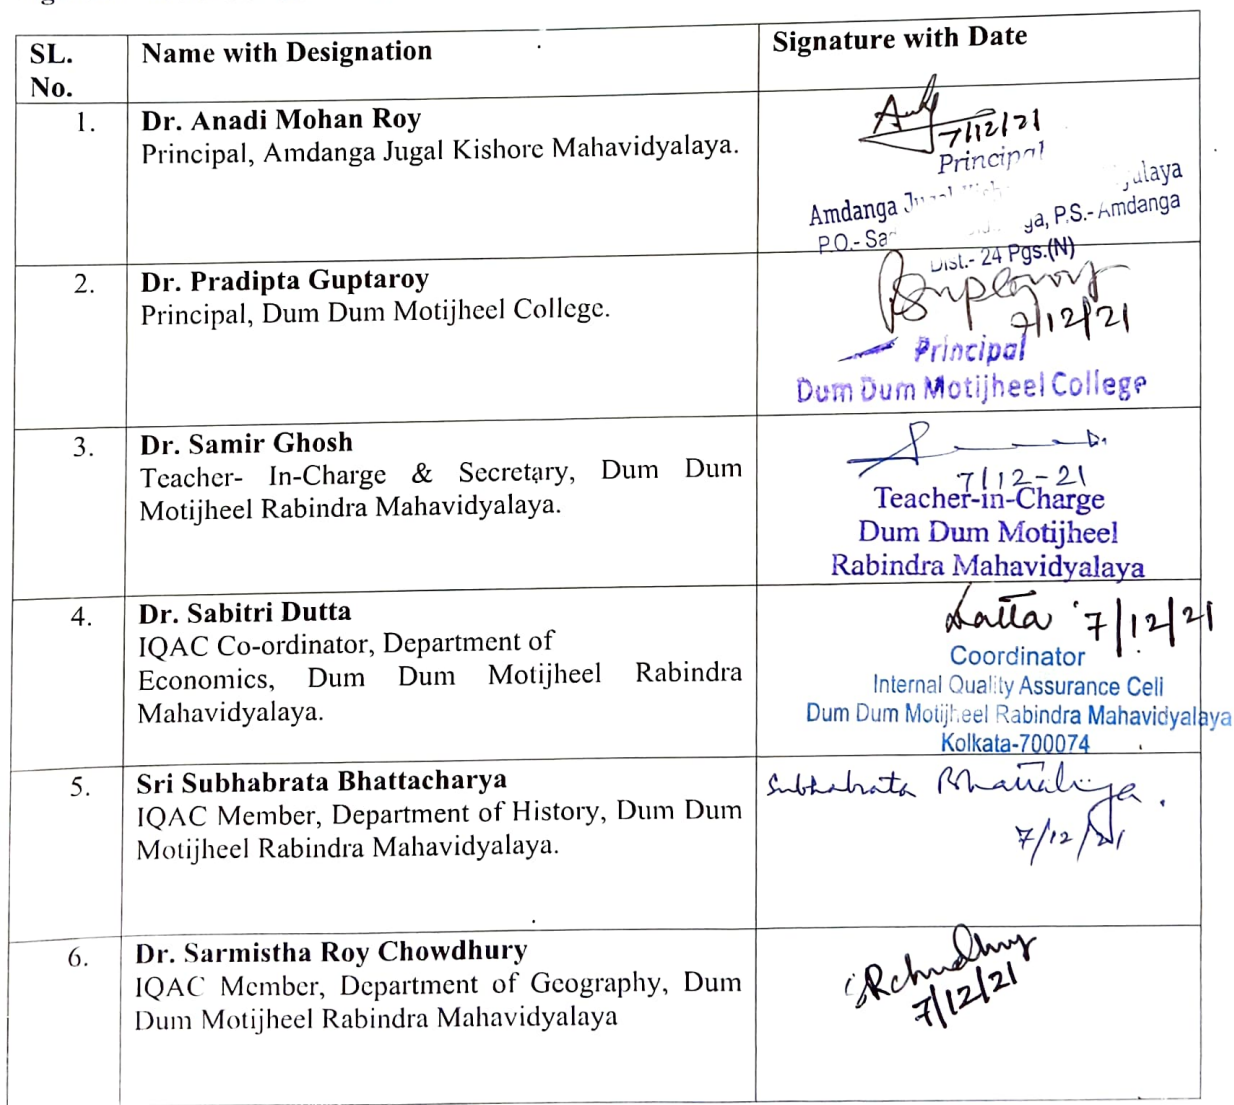 SL. No.
Name with Designation
Signature with Date
1.
Dr. Anadi Mohan Roy
Principal, Amdanga Jugal Kishore Mahavidyalaya.
7/12/21
Principal
Amdanga
P.S.- Amdanga
Dist.- 24 Pgs.(N)
2.
Dr. Pradipta Guptaroy
Principal, Dum Dum Motijheel College.
7/12/21
Principal
Dum Dum Motijheel College
3.
Dr. Samir Ghosh
Teacher- In-Charge & Secretary, Dum Dum
Motijheel Rabindra Mahavidyalaya.
7/12-21
Teacher-in-Charge
Dum Dum Motijheel
Rabindra Mahavidyalaya
4.
Dr. Sabitri Dutta
IQAC Co-ordinator, Department of
Economics, Dum Dum Motijheel Rabindra
Mahavidyalaya.
7/12/21
Coordinator
Internal Quality Assurance Cell
Dum Dum Motijheel Rabindra Mahavidyalaya
Kolkata-700074
5.
Sri Subhabrata Bhattacharya
IQAC Member, Department of History, Dum Dum
Motijheel Rabindra Mahavidyalaya.
Subhabrata
7/12/21
6.
Dr. Sarmistha Roy Chowdhury
IQAC Member, Department of Geography, Dum
Dum Motijheel Rabindra Mahavidyalaya
7/12/21